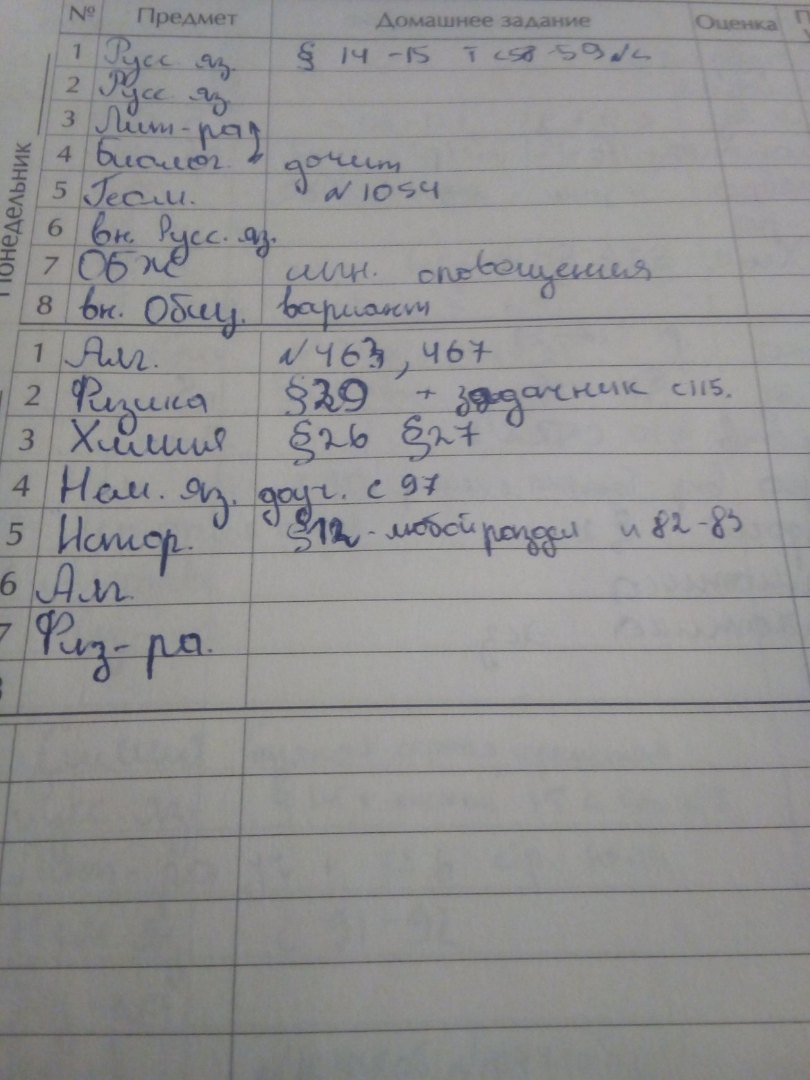 № Предмет Домашнее задание Оценка
Понедельник
1 Русс яз. § 14-15 Т с58-59
2 Русс яз
3 Лит-ра
4 Биолог. дочит
5 Геом. №1054
6 вн. Русс. яз.
7 ОБЖ оповещения
8 вн. Общ. вариант
1 Алг. №463, 467
2 Физика §29 + задачник с115.
3 Химия §26 §27
4 Нем. яз. доуч. с 97
5 Истор. §12 - любой раздел и 82-83
6 Алг.
7 Физ-ра.